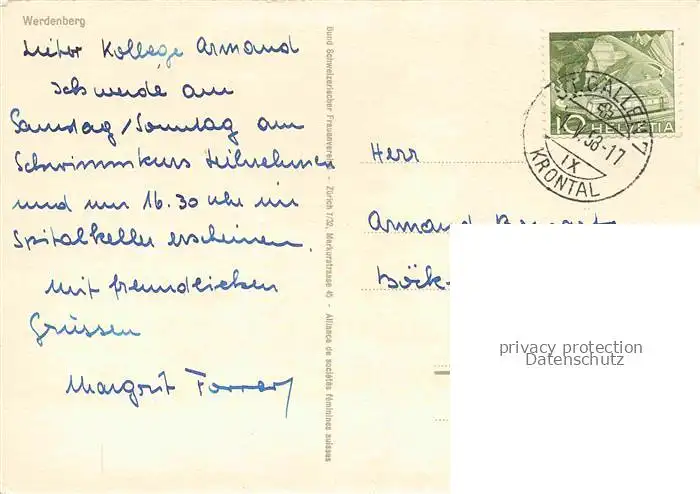 Werdenberg
Lieber Kollege Armand
Ich werde am
Samstag/Sonntag am
Schwimmkurs teilnehmen
und um 16.30 Uhr im
Spitalkeller erscheinen.
Mit freundlichen
Grüssen
Margrit Forrer
Bund Schweizerischer Frauenvereine - Zürich 7/32, Merkurstrasse 45 - Alliance de sociétés féminines suisses
10 HELVETIA
ST. GALLEN 7
58-17
IX
KRONTAL
Herr
Armand
Böck-
privacy protection
Datenschutz